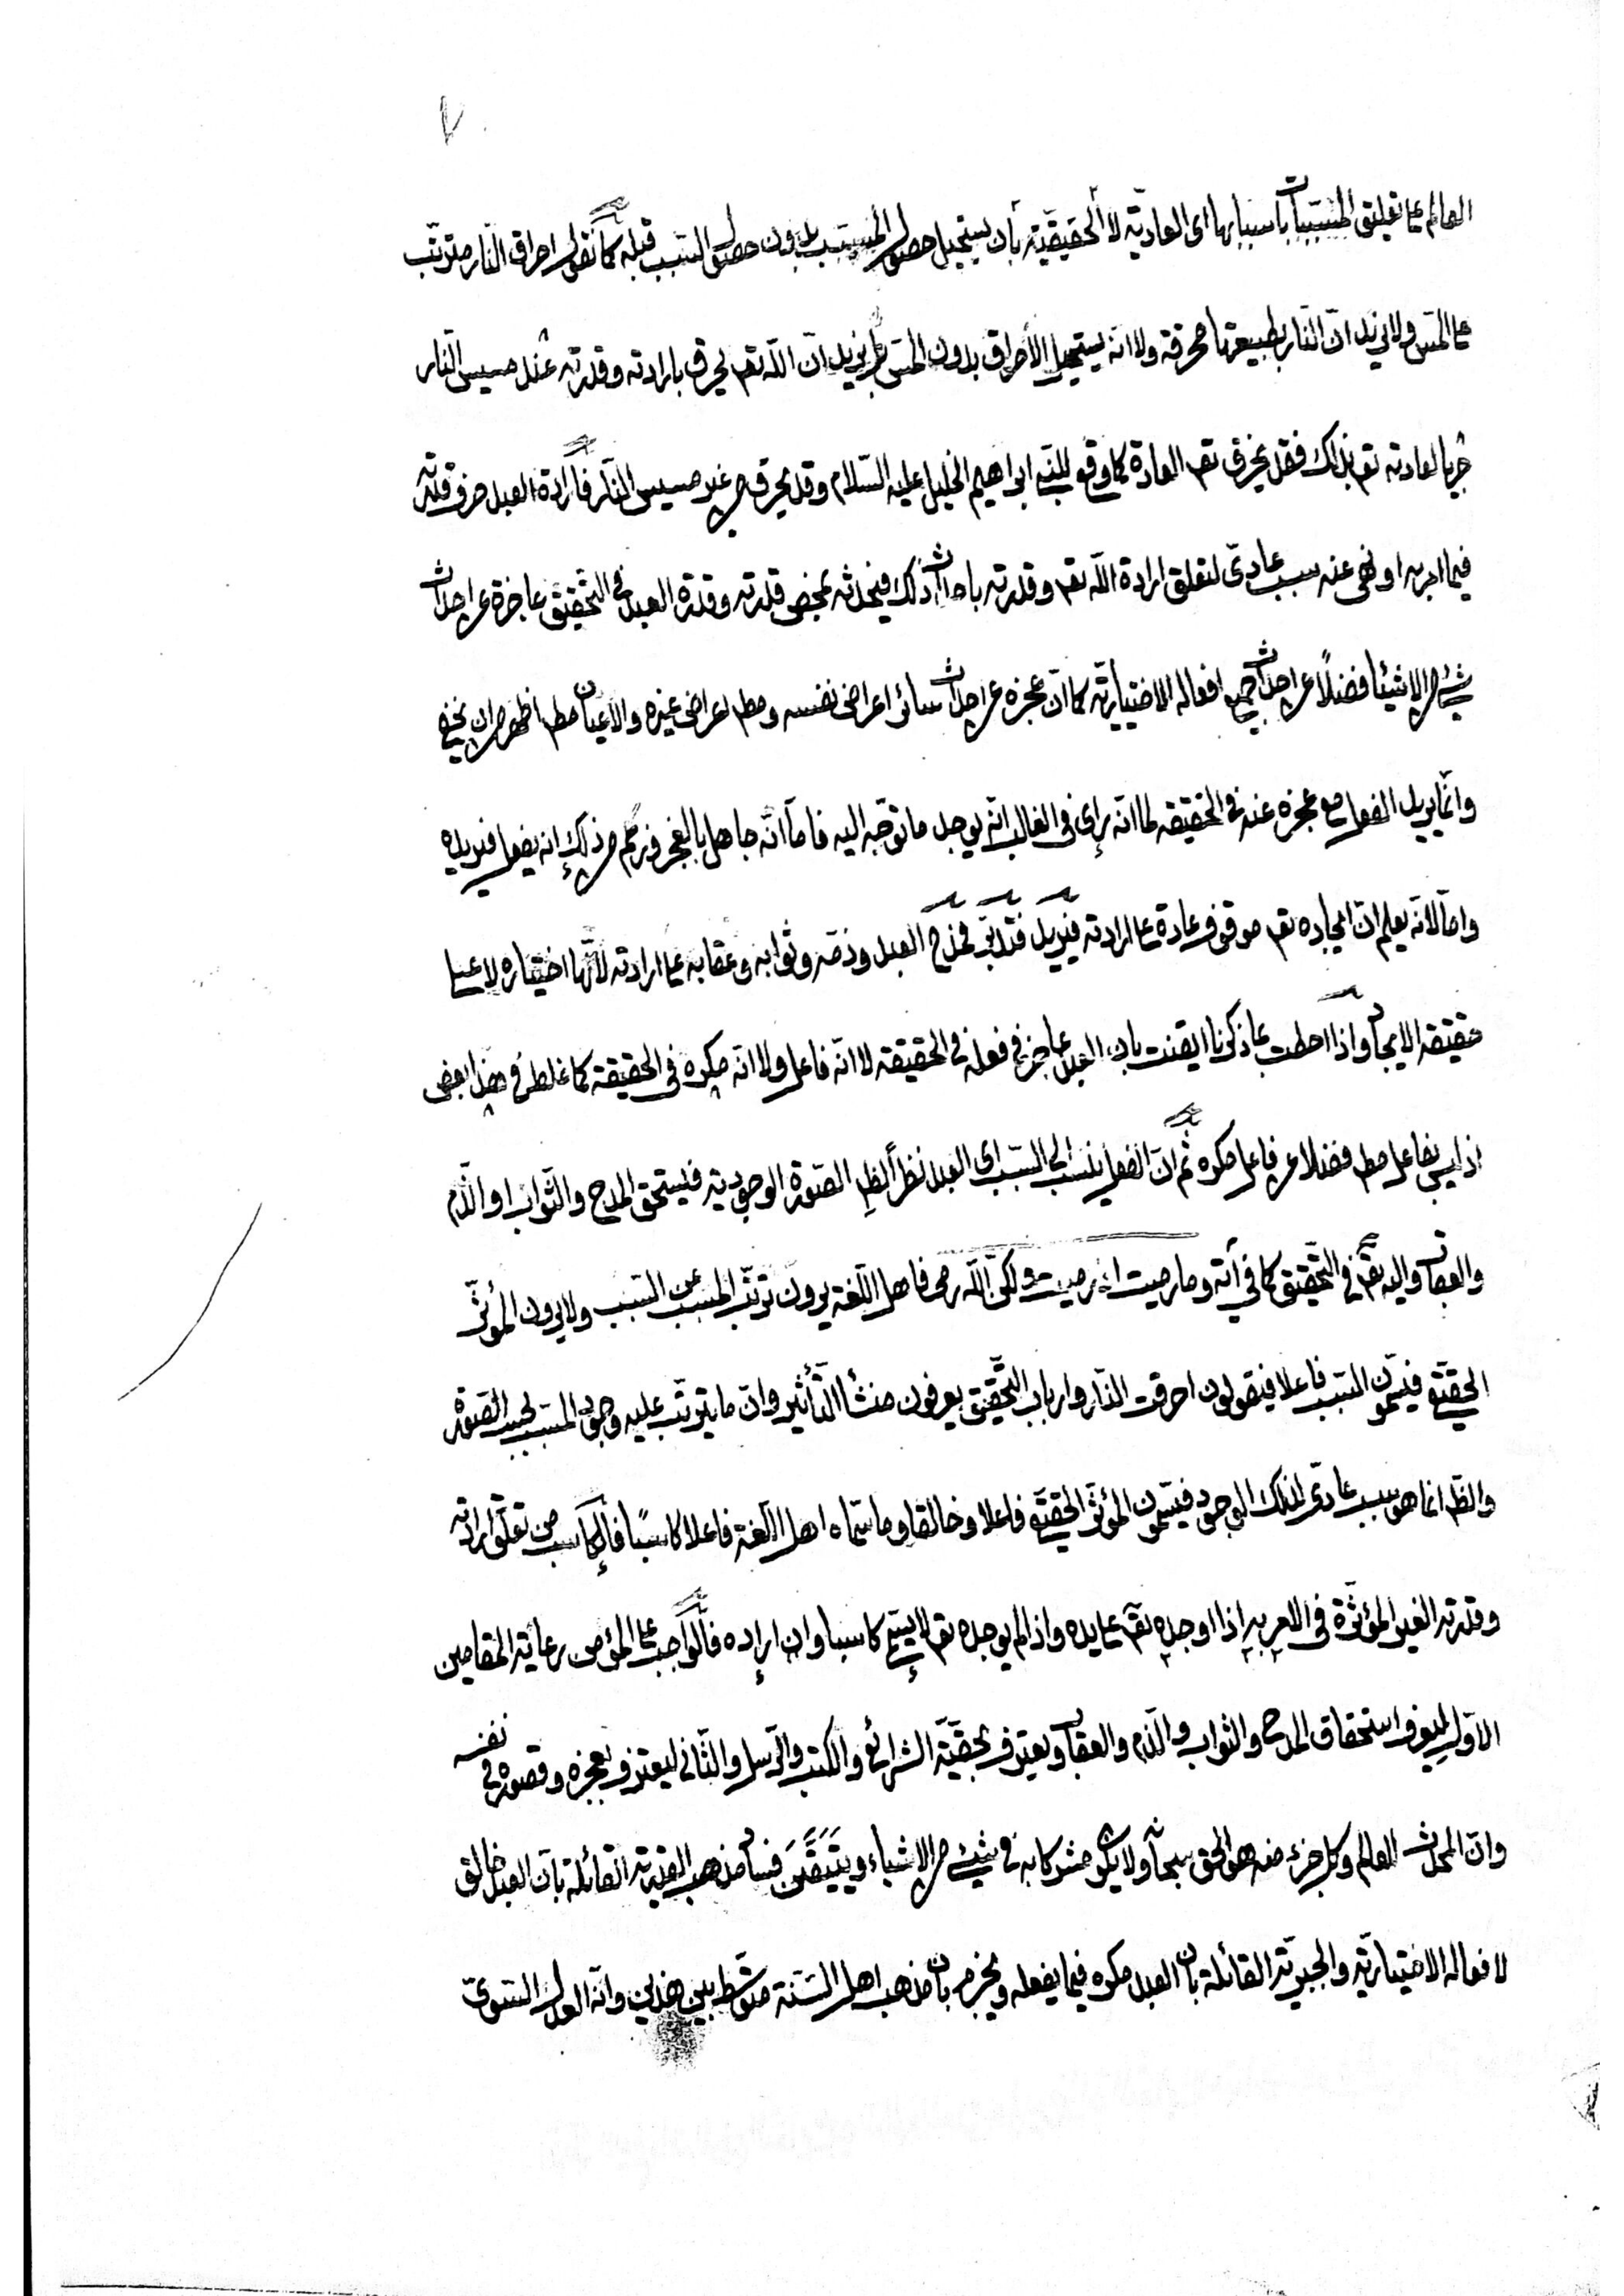 ٧
العالم على تعليق المسببات باسبابها اى العادية لا الحقيقية بان يستحيل حصول المسبب بدون حصول السبب قبله كما نقول احراق النار مترتب
على المس ولا نريد ان النار بطبيعتها محرقة ولا انه يستحيل الأحراق بدون المس بل نريد ان الله تعم يحرق بارادته وقدرته عند مسيس النار
جريا لعادته تعم بذلك فقد يخرق تعم العادة كما وقع للنبى ابراهيم الخليل عليه السلام وقد يحرق من غير مسيس النار فارادة العبد صرف قدرته
فيما امر به او نهى عنه سبب عادى لتعلق ارادة الله تعم وقدرته باحداث ذلك فيحدثه بمحض قدرته وقدرة العبد فى التحقيق عاجزة عن احداث
شئ من الاشيئا فضلا عن احداث جميع افعاله الاختيارية كما ان عجزه عن احداث سائر اعراض نفسه ومطم اعراض غيره والاعيان مطم اظهر من ان يخفى
وانما يريد الفعل مع عجزه عنه فى الحقيقة لما انه يرى فى الغالب انه يوجد ما توجه اليه فاما انه جاهل بالعجز فزعم من ذلك انه يفعل فيريده
واما لانه يعلم ان ايجاده تعم موقوف عادة على ارادته فيريد فتدبر فمدح العبد وذمه وثوابه وعقابه على ارادته لانها اختياره لا على
حقيقة الايجاد واذا احطت بما ذكرنا ايقنت بان العبد عاجز فى فعله فى الحقيقة لا انه فاعل ولا انه مكره فى الحقيقة كما غلط فى هذا بعض
اذ ليس بفاعل مطم فضلا عن فاعل مكره ثم ان الفعل ينسب الى السبب اى العبد نظراً لظم الصورة الوجودية فيستحق المدح والثواب او الذم
والعقاب واليه تعم فى التحقيق كما فى آية وما رميت اذ رميت ولكن الله رمى فاهل اللغة يرون ترتب المسبب عن السبب ولا يرون المؤثر
الحقيقى فيسمون السبب فاعلا فيقولون احرقت النار وارباب التحقيق يعرفون منشأ التأثير وان ما يترتب عليه وجود المسبب بحسب الصورة
والظم انما هو سبب عادى لذلك الوجود فيسمون المؤثر الحقيقى فاعلا وخالقا وما سماه اهل اللغة فاعلا كاسبا فالكاسب من تعلق ارادته
وقدرته الغير المؤثرة فى الامر به اذا اوجده تعم على يده واذا لم يوجده تعم لا يسمى كاسبا وان اراده فالواجب على المؤمن رعاية المقامين
الاول ليعرف استحقاق المدح والثواب والذم والعقاب ويعترف بحقية الشرائع والكتب والرسل والثانى ليعترف بعجزه وقصوره فى نفسه
وان المحدث للعالم وكل جزء منه هو الحق سبحانه ولا يكون مشركا به فى شئ من الاشياء ويتيقن فساد مذهب القدرية القائلة بان العبد خالق
لافعاله الاختيارية والجبرية القائلة بان العبد مكره فيما يفعله ويجزم بان مذهب اهل السنة متوسط بين هذين وانه العدل السوى